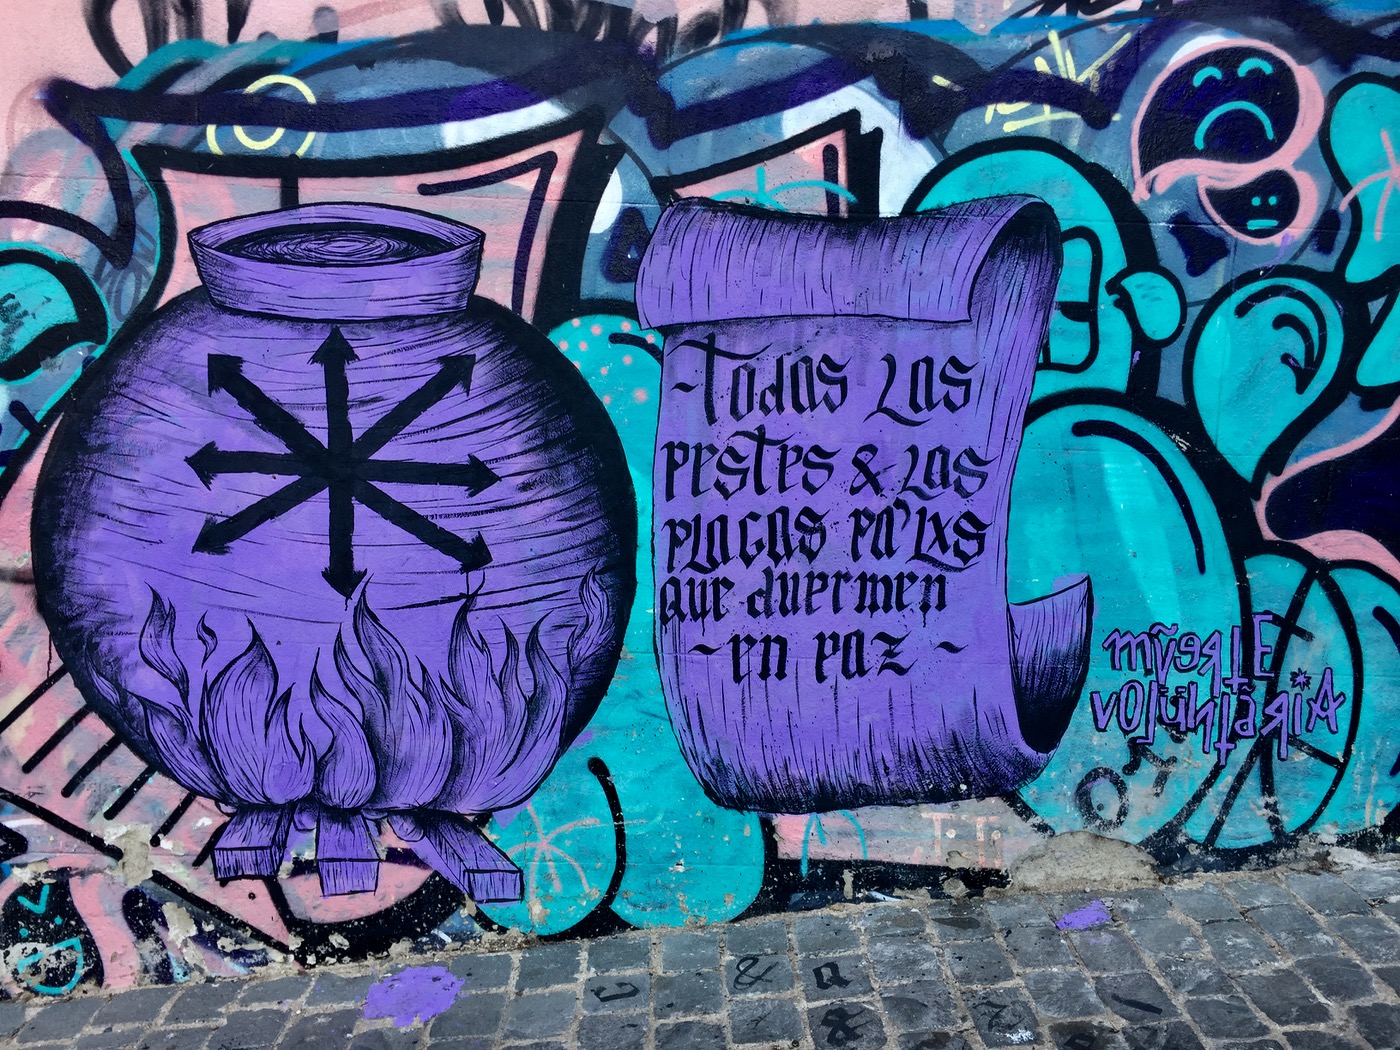 ~Todas las
pestes & las
plagas pa' lxs
que duermen
~en paz~
mũertE
volüntäriA
T.T.
& a
&